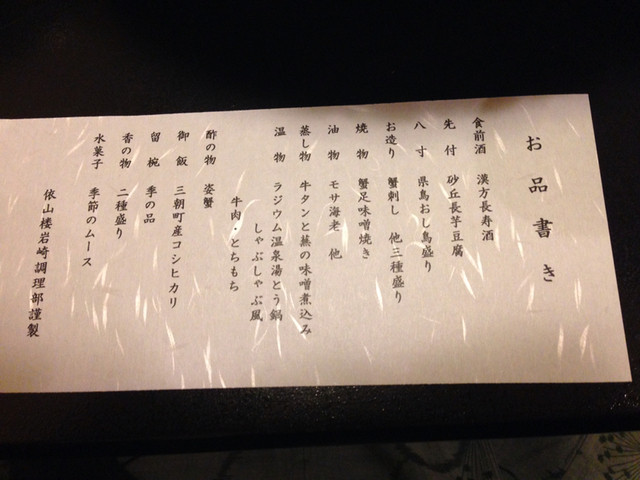 お品書き
食前酒 漢方長寿酒
先付 砂丘長芋豆腐
八寸 県鳥おし鳥盛り
お造り 蟹刺し 他三種盛り
焼物 蟹足味噌焼き
油物 モサ海老 他
蒸し物 牛タンと蕪の味噌煮込み
温物 ラジウム温泉湯とう鍋
しゃぶしゃぶ風
牛肉・とちもち
酢の物 姿蟹
御飯 三朝町産コシヒカリ
留椀 季の品
香の物 二種盛り
水菓子 季節のムース
依山楼岩崎調理部謹製